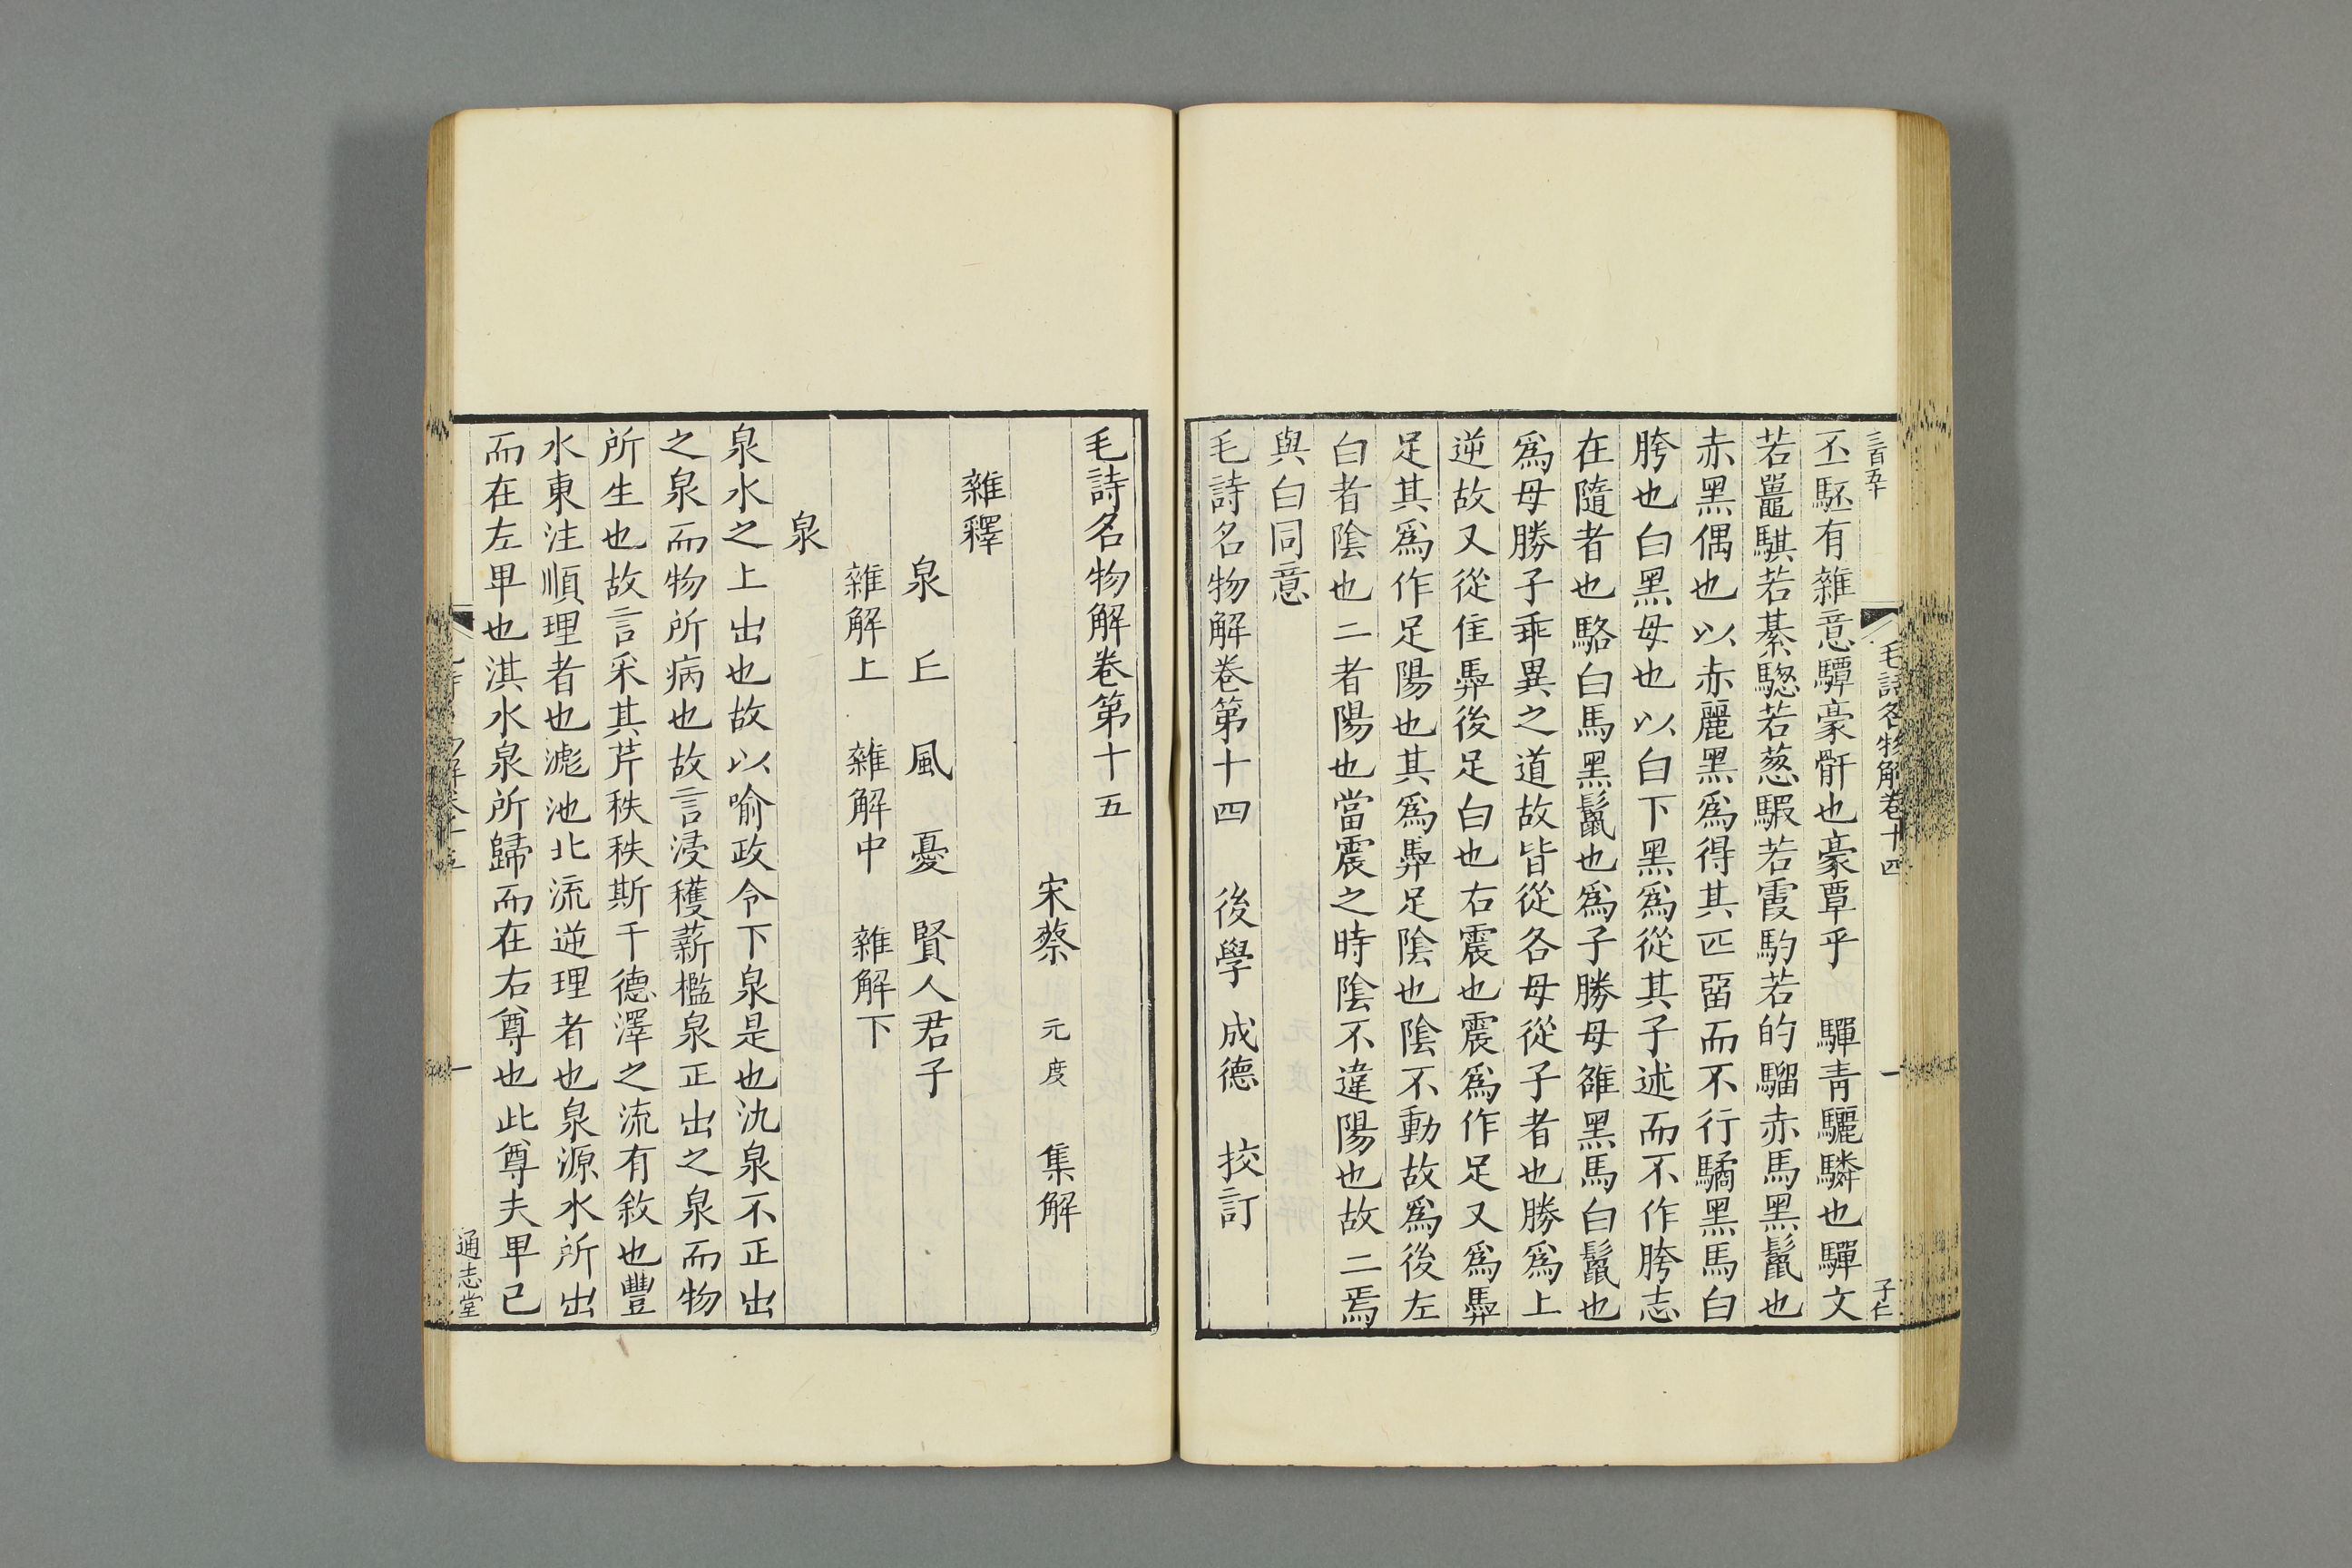 三百五十
毛詩名物解卷十四
一
子仁
丕駓有雜意驔豪骭也豪覃乎　驒青驪驎也驒文
若鼉騏若綦驄若葱騢若霞馰若的騮赤馬黑鬣也
赤黑偶也以赤麗黑爲得其匹畱而不行驈黑馬白
胯也白黑母也以白下黑爲從其子述而不作胯志
在隨者也駱白馬黑鬣也爲子勝母雒黑馬白鬣也
爲母勝子乖異之道故皆從各母從子者也勝爲上
逆故又從隹馵後足白也右震也震爲作足又爲馵
足其爲作足陽也其爲馵足陰也陰不動故爲後左
白者陰也二者陽也當震之時陰不違陽也故二焉
與白同意
毛詩名物解卷第十四　後學　成德　挍訂
毛詩名物解卷第十五
宋蔡　元度　集解
雜釋
泉　丘　風　憂　賢人君子
雜解上　雜解中　雜解下
泉
泉水之上出也故以喻政令下泉是也氿泉不正出
之泉而物所病也故言浸穫薪檻泉正出之泉而物
所生也故言采其芹秩秩斯干德澤之流有敘也豐
水東注順理者也滮池北流逆理者也泉源水所出
而在左甲也淇水泉所歸而在右尊也此尊夫甲已
一
通志堂